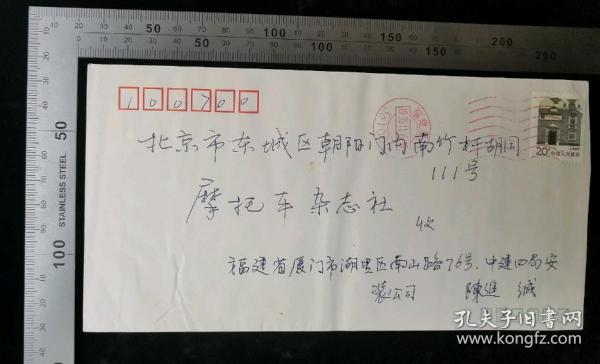 100700
北京市东城区朝阳门内南竹杆胡同
111号
摩托车杂志社
收
福建省厦门市湖里区南山路76号.中建四局安
装公司 陳進诚
20分
中国人民邮政
STAINLESS STEEL
50 100 150 200
50 100 150 200
50
100
孔夫子旧书网
www.kongfz.com